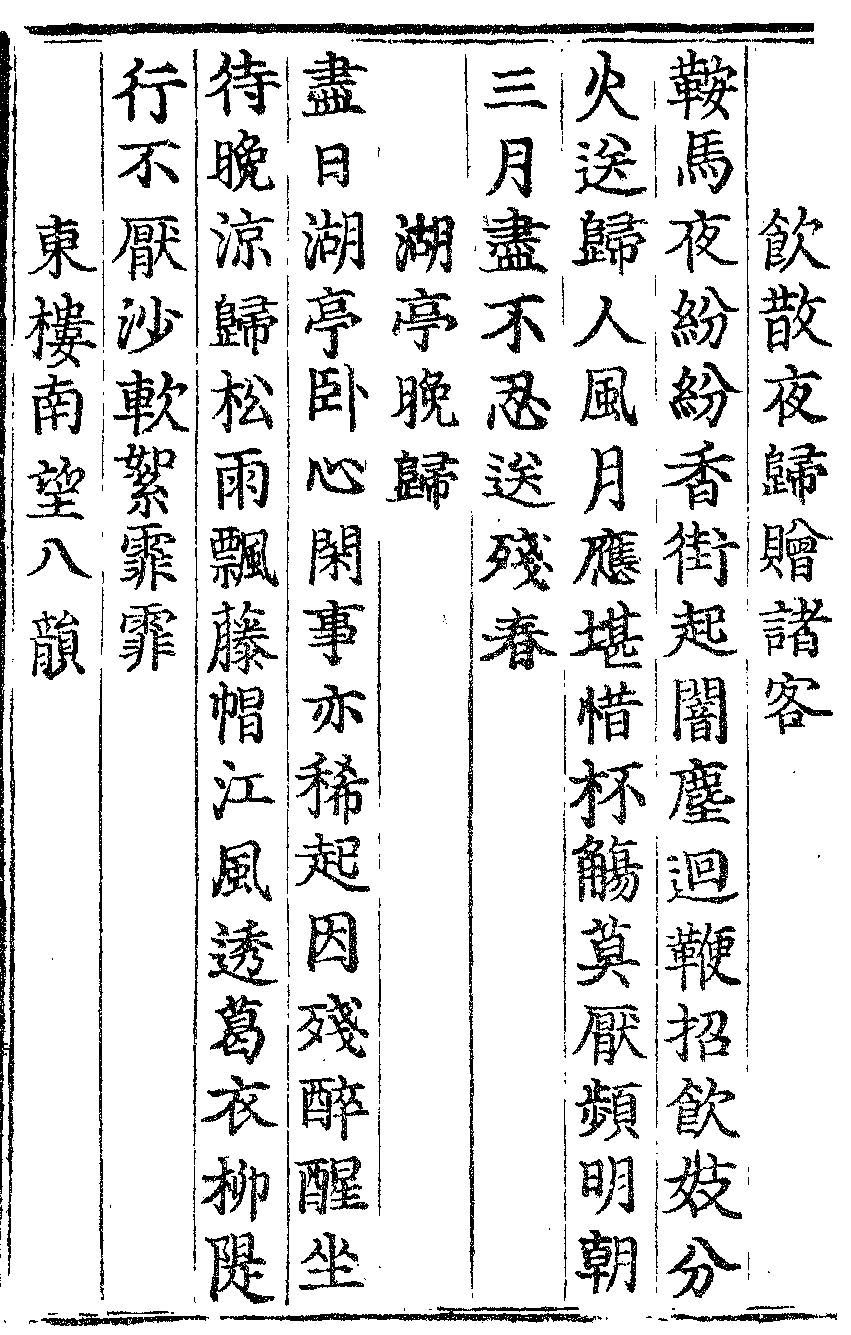 飲散夜歸贈諸客
鞍馬夜紛紛香街起闇塵迴鞭招飲妓分
火送歸人風月應堪惜杯觴莫厭頻明朝
三月盡不忍送殘春
湖亭晚歸
盡日湖亭卧心閑事亦稀起因殘醉醒坐
待晚涼歸松雨飄藤帽江風透葛衣柳隄
行不厭沙軟絮霏霏
東樓南望八韻